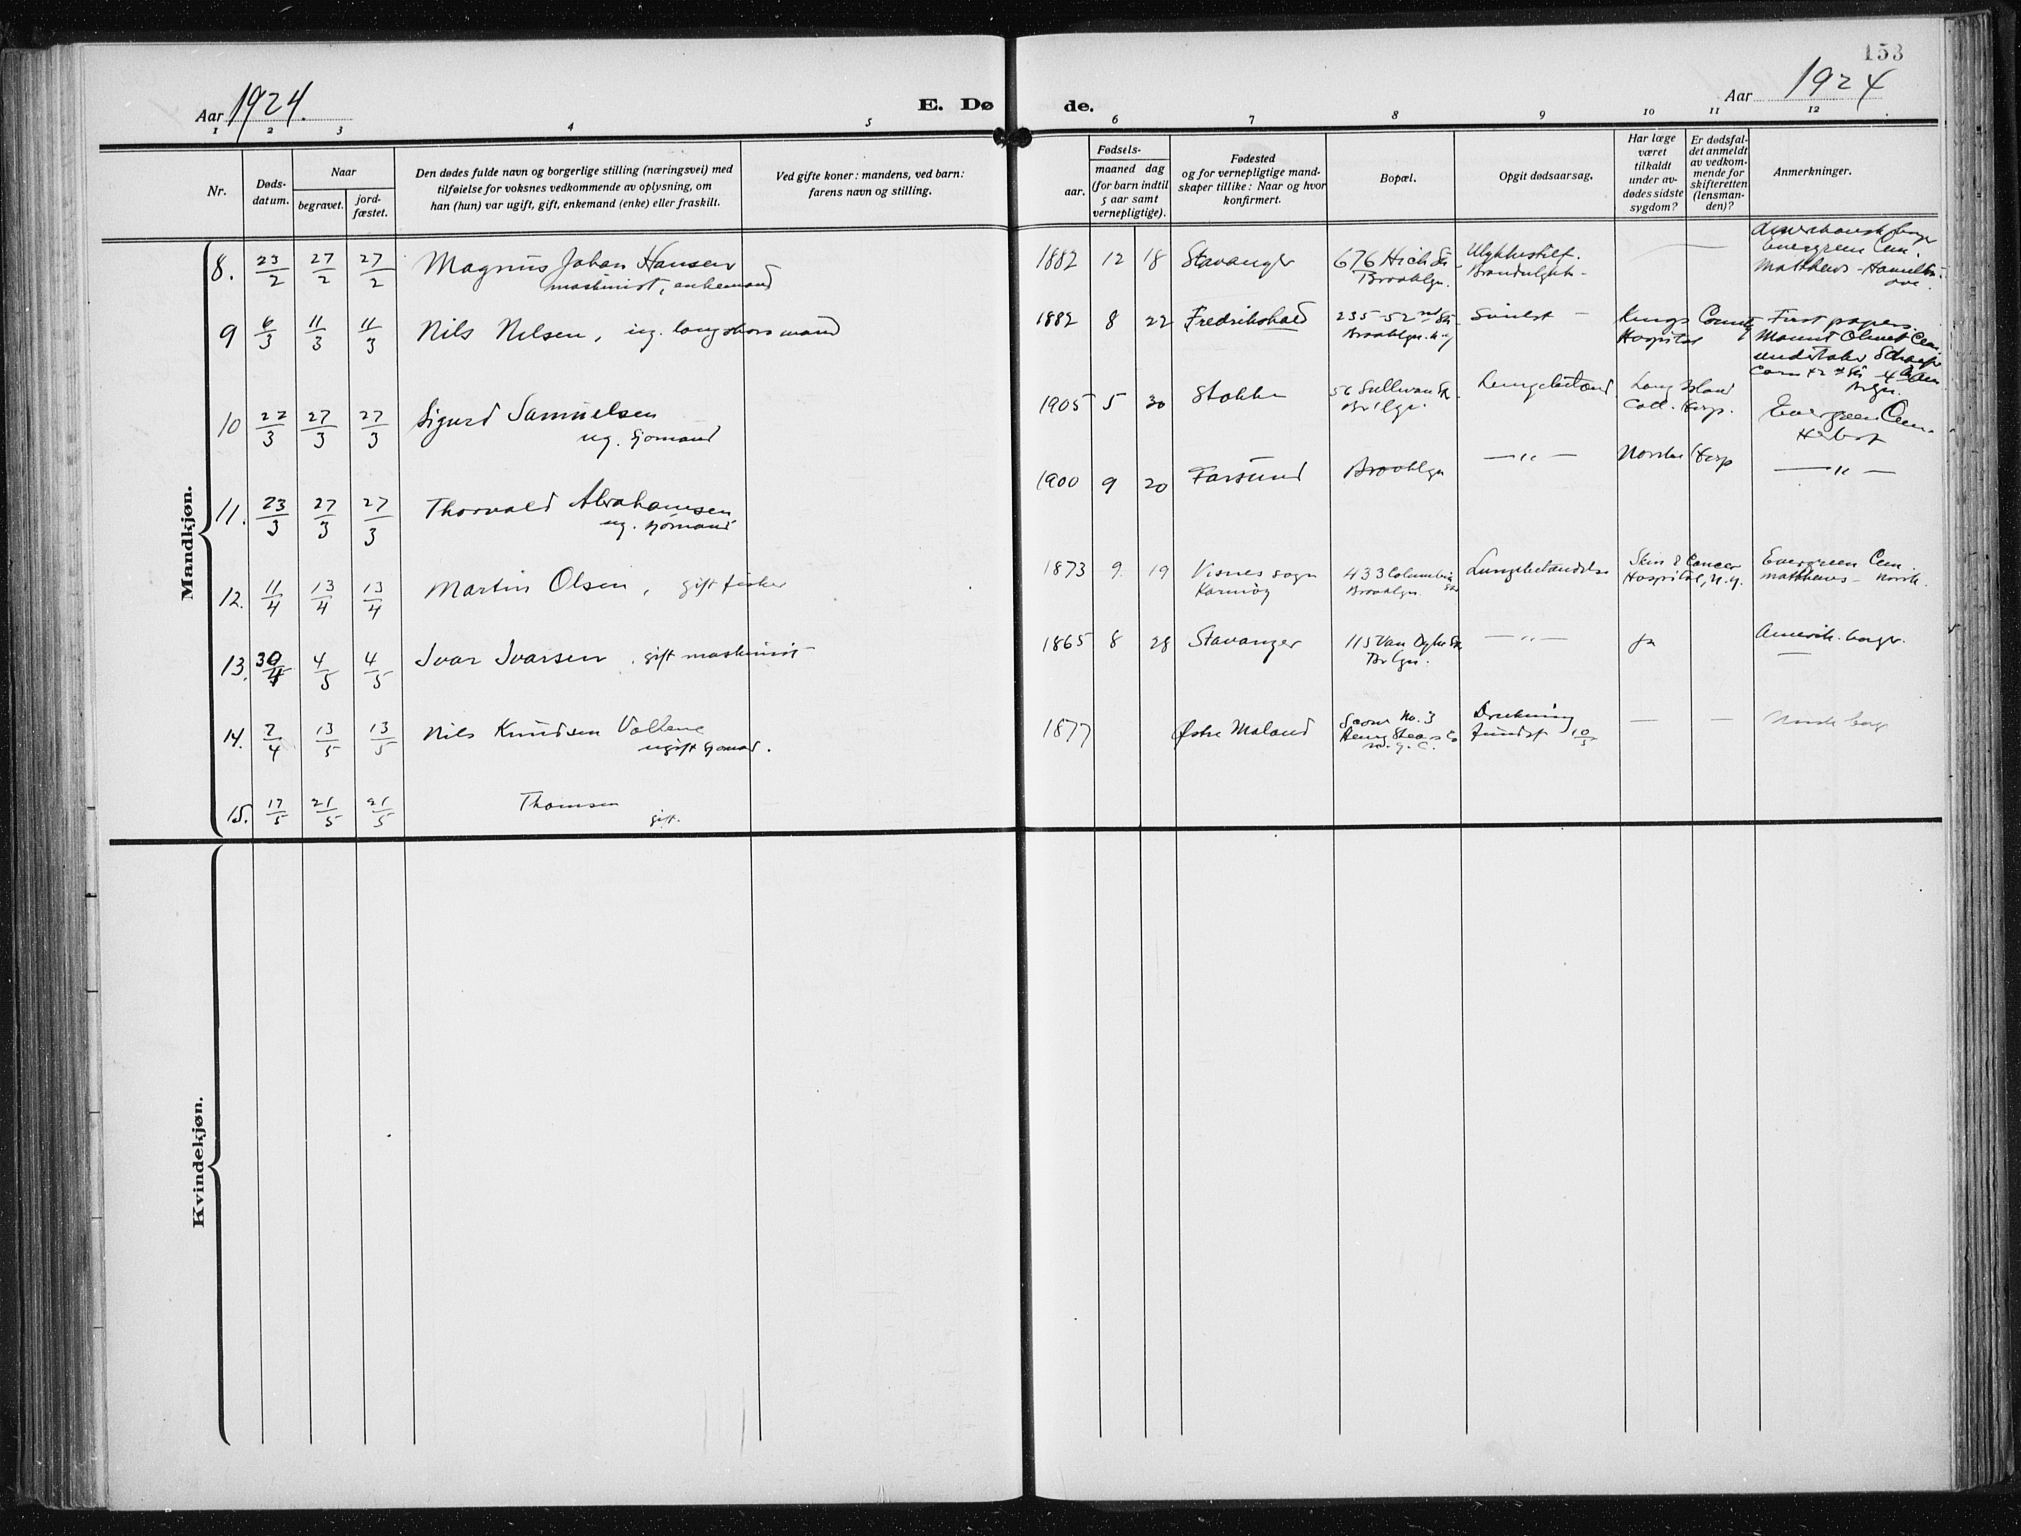 153
Aar 1924.
E. Dø de.
Aar 1924
1 2 3 4 5 6 7 8 9 10 11 12
Nr.
Døds-
datum.
Naar
begravet.
jord-
fæstet.
Den dødes fulde navn og borgerlige stilling (næringsvei) med
tilføielse for voksnes vedkommende av oplysning, om
han (hun) var ugift, gift, enkemand (enke) eller fraskilt.
Ved gifte koner: mandens, ved barn:
farens navn og stilling.
Fødsels-
aar.
maaned dag
(for barn indtil
5 aar samt
vernepligtige).
Fødested
og for vernepligtige mand-
skaper tillike: Naar og hvor
konfirmert.
Bopæl.
Opgit dødsaarsag.
Har læge
været
tilkaldt
under av-
dødes sidste
sygdom?
Er dødsfal-
det anmeldt
av vedkom-
mende for
skifteretten
(lensman-
den)?
Anmerkninger.
Mandkjøn.
8. 23/2 27/2 27/2 Magnus Johan Hansen
maskinist, enkemand
1882 12 18 Stavanger
676 Hich Str.
Brooklyn.
Ulykkestilf.
— Evergreen Cem.
Matthews - Hamilton
ave.
9 6/3 11/3 11/3 Nils Nelsen, ug. longshoremand
1882 8 22 Fredrikshald
235-52nd Str.
Brooklyn. N.Y
Kings County
Hospital
First papers.
Mount Olivet Cem.
undertaker
10 22/3 27/3 27/3 Sigurd Samuelsen
ug. sjømand
1905 5 30 Stokke
56 Sullivan St.
Long Island
Coll. Hosp.
Evergreen Cem.
11. 23/3 27/3 27/3 Thorvald Abrahamsen
ug. sjømand
1900 9 20 Farsund
Brooklyn
— " —
Norske Hosp
— " —
12. 11/4 13/4 13/4 Martin Olsen, gift fisker
1873 9. 19 Visnes sogn
Karmöy
433 Columbia
Brooklyn.
Lungebetændelse
Skin & Cancer
Hospital, N.Y.
Evergreen Cem.
Matthews - norsk.
13. 30/4 4/5 4/5 Ivar Ivarsen, gift maskinist
1865 8 28 Stavanger
115 Van Dyke St.
— " —
ja
Amerik. borger.
14. 2/4 13/5 13/5 Nils Knudsen
ugift sjømand.
1877 Østre Moland
Scow No. 3
Drukning
fundet 10/5
— — Norsk borg
15. 17/5 21/5 21/5 Thomsen
gift.
Kvindekjøn.